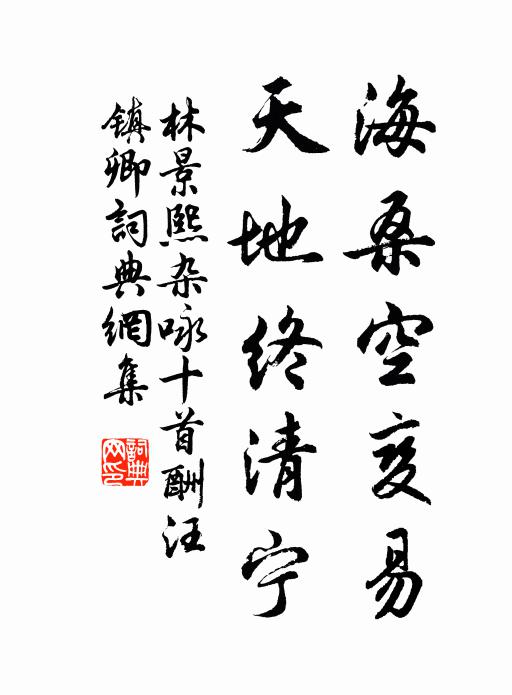 海桑空变易
天地终清宁
林景熙杂咏十首酬汪
镇卿詞典網集
詞典
网印